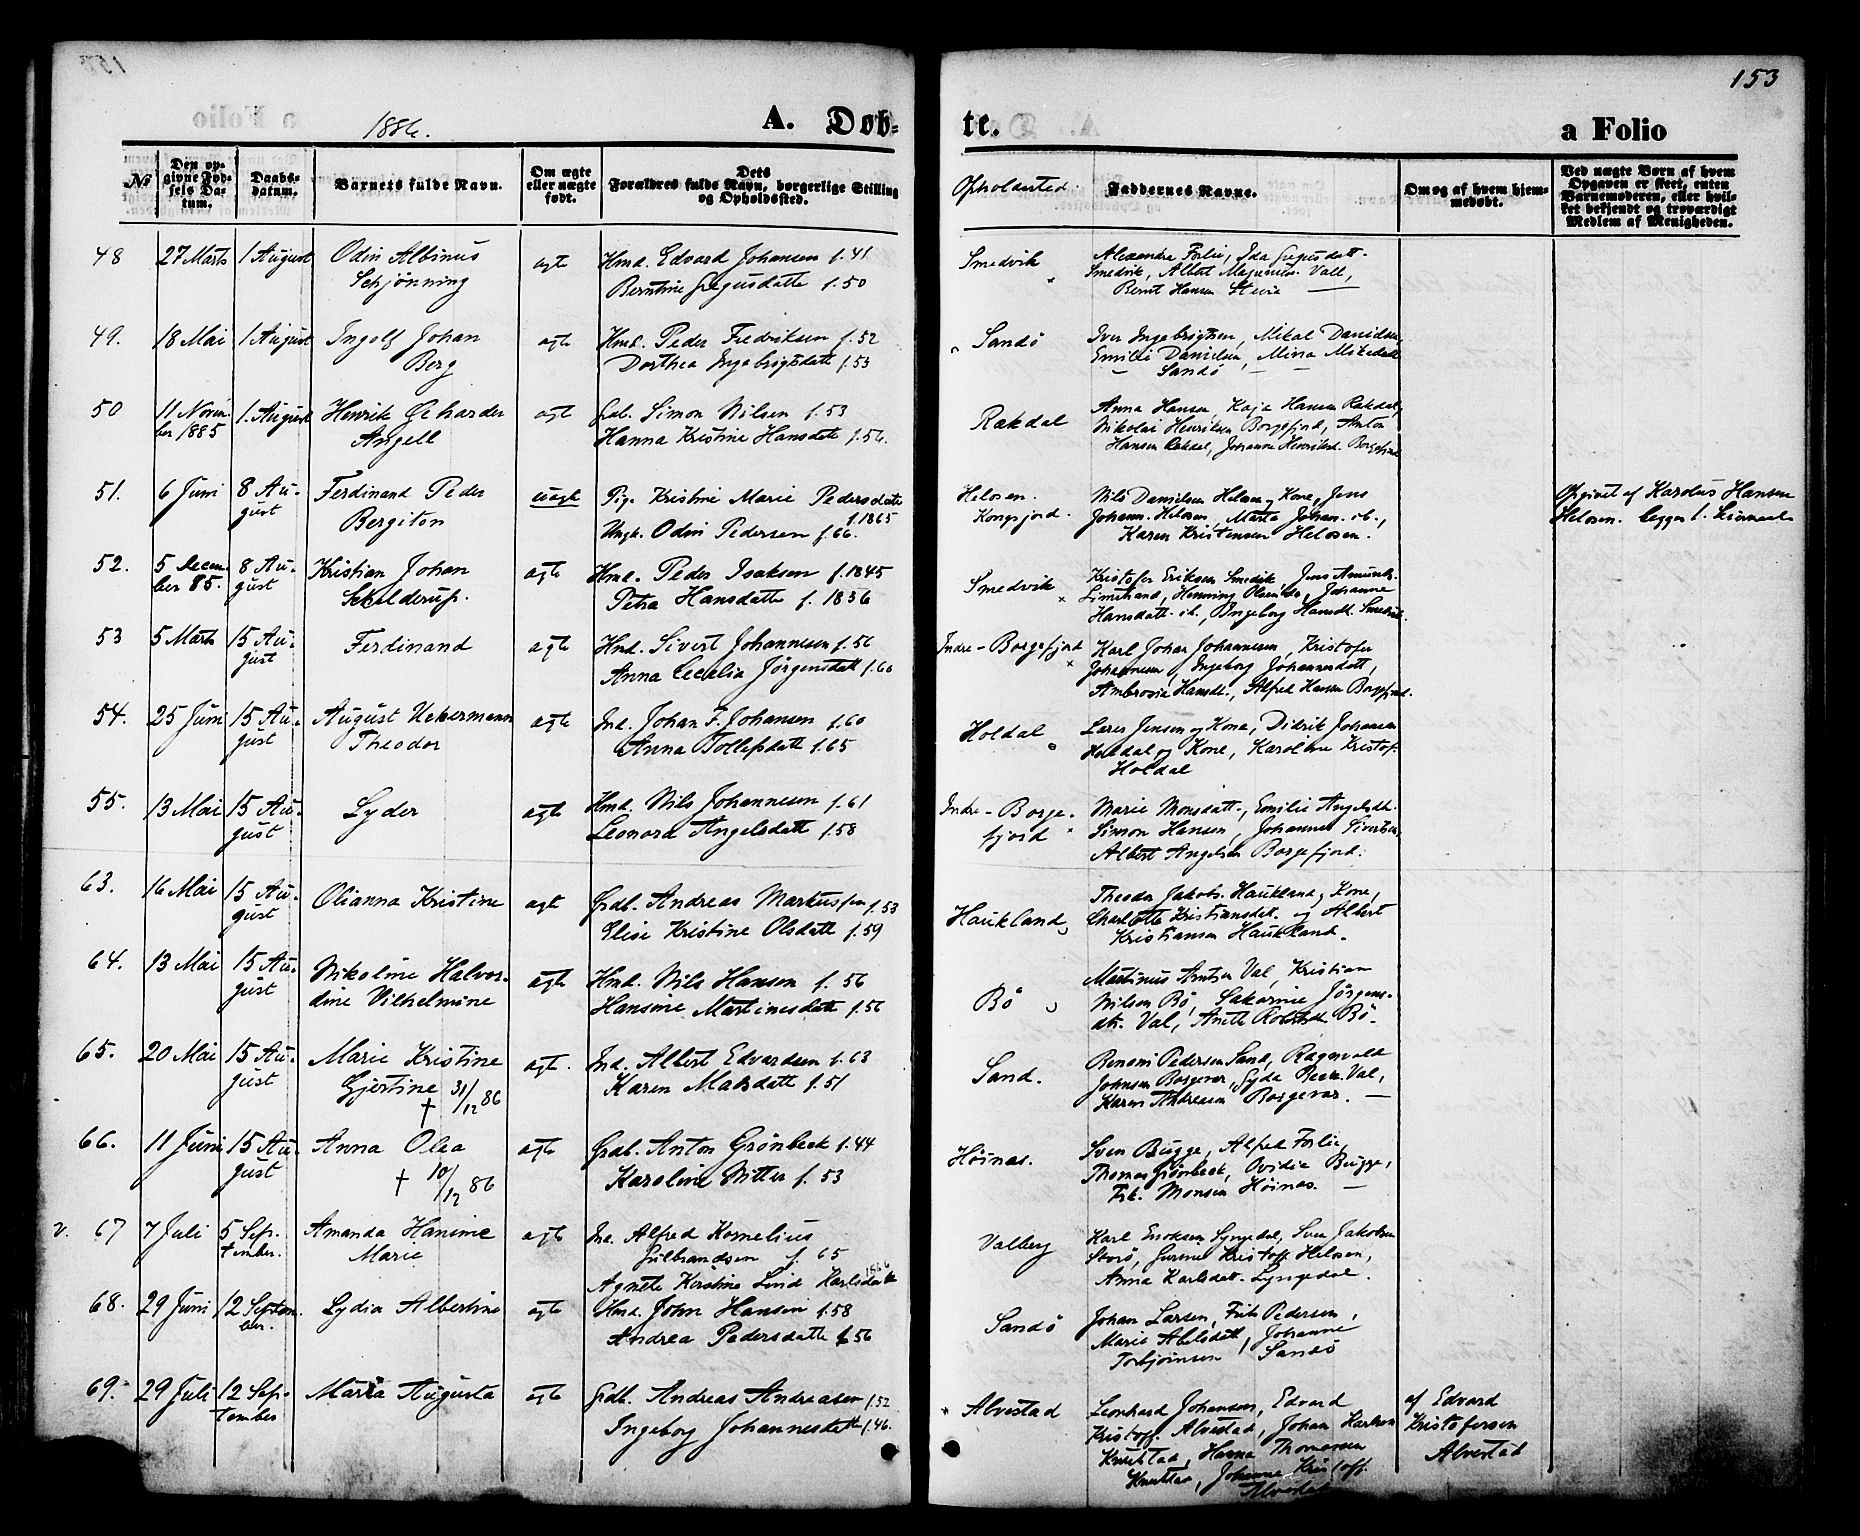 153
1886.
A. Døb-
te.
a Folio
No
Den op-
givne Fød-
sels Da-
tum.
Daabs-
datum.
Barnets fulde Navn.
Om ægte
eller uægte
født.
Dets
Forældres fulde Navn, borgerlige Stilling
og Opholdssted.
Opholdssted.
Faddernes Navne.
Om og af hvem hjem-
medøbt.
Ved uægte Børn af hvem
Opgaven er skeet, enten
Barnemoderen, eller hvil-
ket bekjendt og troværdigt
Medlem af Menigheden.
48 27 Marts 1 August Odin Albinus
Schjønning
ægte
Hmd. Edvard Johansen f. 41
Berntine f. 50
Smedvik
Alexandra Forlie, Ida
Smedvik, Albert Vall,
Bernt Hansen
49. 18 Mai 1 August Ingolf Johan
Berg
ægte
Hmd. Peder Fredriksen f. 52
Dorthea Ingebrigtsdatt f. 53
Sandö
Iver Ingebrigtsen, Mikal Danielsen,
Emilie Danielsen, Mina
Sandö
50 11 Novem-
ber 1885 1. August Henrik
Angell
ægte
Simon Nilsen f. 53
Hanna Kristine Hansdatt f. 56.
Rakdal
Anna Hansen, Kaja Hansen Rakdal,
Nikolai Henriksen Borgefjord, Anton
Hansen Rakdal, Johanna
51. 6 Juni 8 Au-
gust Ferdinand Peder
Bergiton
uægte
Pig. Kristine Marie Pedersdatt
f. 1865
Ungk. Odin Pedersen f. 66.
Helosen.
Kongsjord.
Nils Danielsen Helosen og Kone, Jens
Johann. Helosen, Marta Johan. ib.,
Karen Kristensen Helosen.
Opgivet af Karolus Hansen
Helosen.
52. 5 Decem-
ber 85. 8 Au-
gust Kristian Johan
Schelderup.
ægte
Hmd. Peder Isaksen f. 1845
Petra Hansdatte f. 1836
Smedvik
Kristofer Eriksen Smedvik, Jens
Limstrand, Henning Johanne
Hansdatt. ib., Ingeborg Hansdt. Smedvik.
53 5 Marts 15 Au-
gust Ferdinand
ægte
Hmd. Sivert Johannesen f. 56
Anna Cecelia Jörgensdatt f. 60
Indre-Borgefjord
Karl Johan Johannesen, Kristofer
Johannesen, Ingeborg Johannesdatt,
Ambrosia Hansdt., Alfred Hansen Borgefjord.
54. 25 Juni 15 Au-
gust August Uchermann
Theodor
ægte
Ind. Johan F. Johansen f. 60
Anna Tollefsdatt f. 65
Holdal
Lars Jensen og Kone, Didrik Johansen
Holdal og Kone, Karoline Kristof.
Holdal
55. 13 Mai 15 Au-
gust Lyder
ægte
Hmd. Nils Johannesen f. 61
Leonora Angelsdatt f. 58
Indre-Borge-
fjord
Marie Monsdatt., Emilie Angelsdt.
Simon Hansen, Johannes Sivertsen,
Albert Angelsen Borgefjord.
63. 16 Mai 15 Au-
gust Olianna Kristine
ægte
Grdb. Andreas Markussen f. 53
Elise Kristine Olsdatt f. 59
Haukland
Theodor Jakobs. Haukland og Kone,
Charlotte Kristiansdt. og Albert
Kristiansen Haukland.
64. 13 Mai 15 Au-
gust Nikoline Halvor-
dine Vilhelmine
ægte
Hmd. Nils Hansen f. 56
Hansine Martinesdatt f. 56
Bö
Martinus Arntsen Val, Kristian
Nilsen Bö, Sakarine Jörgens-
dt. Val, Anette Bö.
65. 20 Mai 15 Au-
gust Marie Kristine
Gjertine
† 31/12 86
ægt.
Ind. Albert Edvardsen f. 63
Karen Madsdatt f. 51
Sand.
Benoni Pedersen Sand, Ragnvald
Johnsen Borgevær, Lyda Beck Val,
Karen Andreasen Borgevær.
66. 11 Juni 15 Au-
gust Anna Olea
† 10/12 86
ægte
Grdb. Anton Grönbeck f. 44
Karoline Nitter f. 53
Höinæs.
Sven Bugge, Alfred Forlie,
Thomas Grönbeck, Ovidia Bugge,
Frk. Monsen Höinæs.
v. 67 7 Juli 5 Sep-
tember. Amanda Hanine
Marie
ægte
Ind. Alfred Kornelius
Gulbrandsen f. 65
Agnete Kirstine Lind Karlsdatt
Valberg
Karl Lyngedal, Sven Jakobsen
Storö, Kristoff. Helosen,
Anna Karlsdatt. Lyngedal.
68. 29 Juni 12 Septem-
ber. Lydia Albertine
ægte
Hmd. John Hansen f. 58
Andrea Pedersdatte f. 56
Sandö
Johan Larsen, Frits Pedersen,
Marie Abelsdatt, Johanne
Torbjörnsen Sandö
69. 29 Juli 12 Sep-
tember Maria Augusta
ægte
Grdb. Andreas Andreasen f. 52
Ingeborg Johannesdatte f. 46.
Alvestad
Leonhard Johansen, Edvard
Kristoff. Alvestad, Johan
Knutstad, Hanna Thomassen
Knutstad, Johanna Kristoff.
Alvestad
af Edvard
Kristofersen
Alvestad